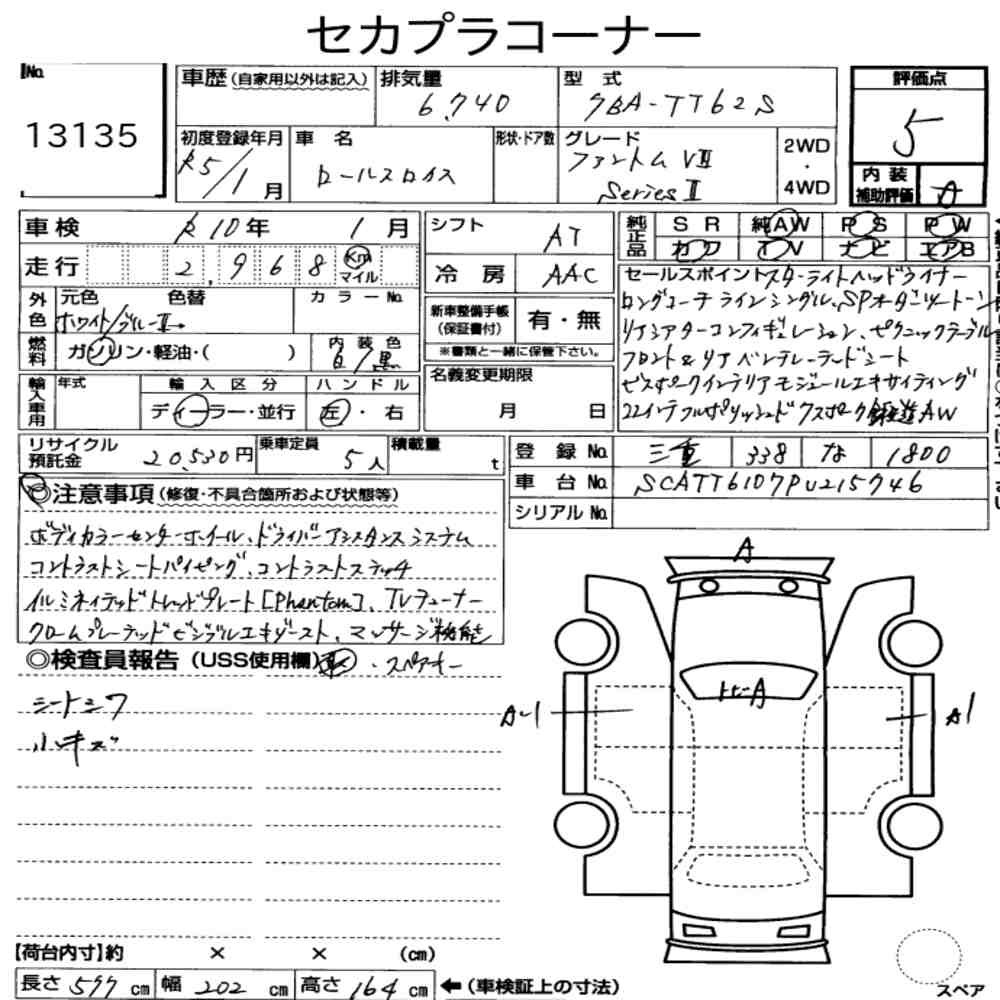 セカプラコーナー
No.
13135
車歴 (自家用以外は記入)
排気量
6,740
型 式
7BA-TT62S
評価点
5
内装
補助評価
A
初度登録年月
R5/1月
車 名
ロールスロイス
形状・ドア数
グレード
ファントム VIII
Series II
2WD
・
4WD
車検
R10年 1月
走行
2,968
Km
マイル
シフト
AT
冷 房
AAC
純正品
SR
純AW
PS
PW
カワ
TV
ナビ
エアB
外色
元色
色替
カラーNo.
ホワイト/ブルーII→
燃料
ガソリン・軽油・( )
内装色
白/黒
新車整備手帳
(保証書付)
有・無
※書類と一緒に保管下さい。
セールスポイント スターライトヘッドライナー
ロングコーチラインシングル、SPオーダーツートーン
リアシアターコンフィギュレーション、ピクニックテーブル
フロント&リアベンチレーテッドシート
ビスポークインテリアモジュールエキサイティング
22インチフルポリッシュド 7スポーク鍛造AW
輸入車用
年式
輸入区分
ディーラー・並行
ハンドル
左・右
名義変更期限
月 日
リサイクル
預託金
20,530円
乗車定員
5人
積載量
t
登録No.
三重
338
な
1800
車台No.
SCATT6107PU215746
シリアルNo.
◎注意事項 (修復・不具合箇所および状態等)
ボディカラーセンターホイール、ドライバーアシスタンスシステム
コントラストシートパイピング、コントラストステッチ
イルミネイテッドトレッドプレート[Phantom]、TVチューナー
クロームプレーテッドビジブルエキゾースト、マッサージ機能
◎検査員報告 (USS使用欄)
・スペアキー
シートシワ
小キズ
A
トビーA
A-1
A1
【荷台内寸】約 × × (cm)
長さ 577 cm
幅 202 cm
高さ 164 cm
←(車検証上の寸法)
スペア